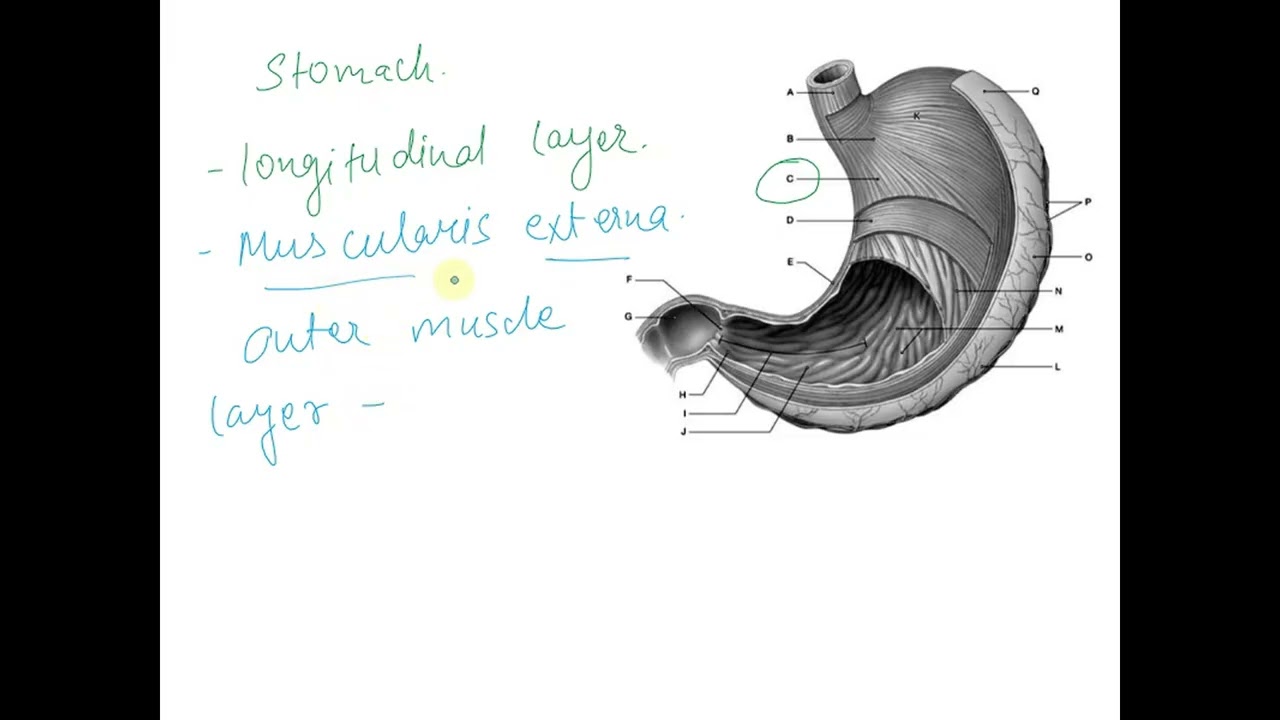 Stomach.
- longitudinal layer.
- Muscularis externa.
outer muscle
layer -
A
B
C
D
E
F
G
H
I
J
K
Q
P
O
N
M
L